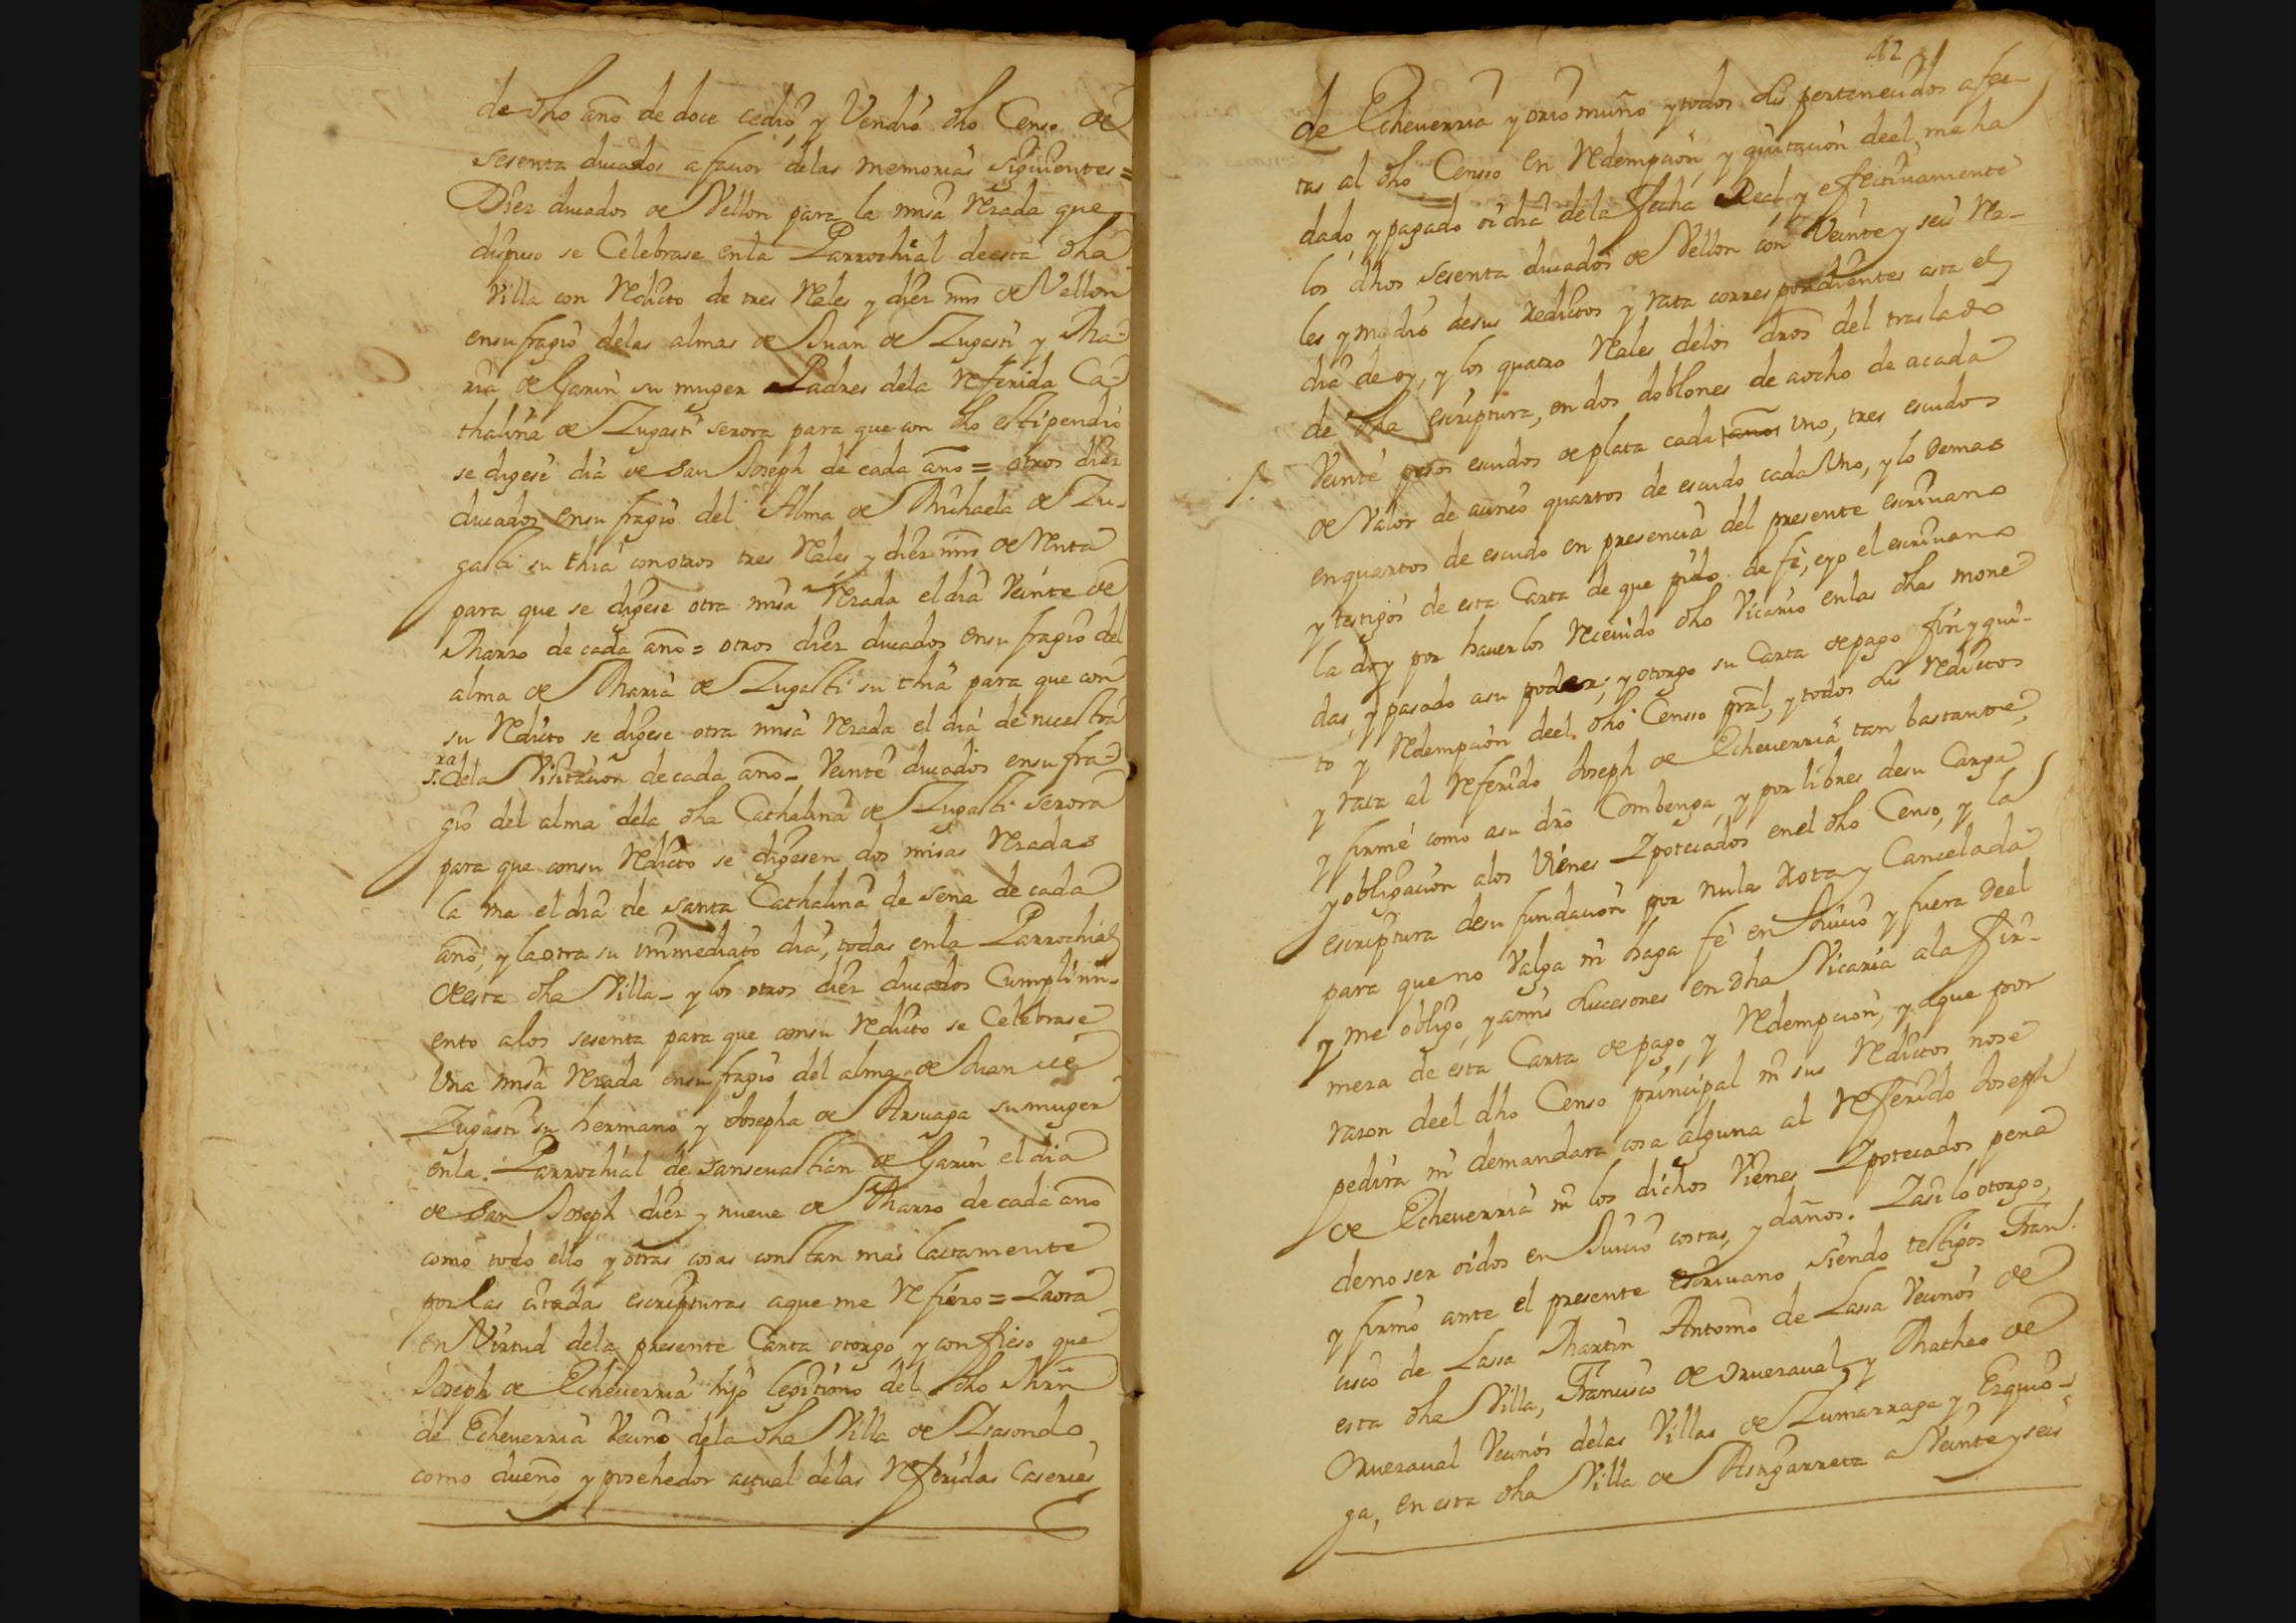 de dho año de doce cedio, y Vendio dho Censo de
sesenta ducados a fauor delas memorias siguientes =
Diez ducados de Vellon para la missa Rezada que
dispuso se Celebrase enla Parrochial deesta dha
Villa con Redicto de tres Reales y diez mrs de Vellon
ensufragio delas almas de Juan de Zugasti y Ma-
ria de Garin su muger Padres dela Referida Ca-
thalina de Zugasti serora para que con dho estipendio
se digese dia de San Joseph de cada año = otros diez
ducados ensu fragio del Alma de Michaela de Zu-
gasti su thia conotros tres Reales y diez mrs de Renta
para que se digese otra missa Rezada el dia Veinte de
Marzo de cada año = otros diez ducados ensu fragio del
alma de Maria de Zugasti su thia para que con
su Redicto se digese otra missa Rezada el dia de nuestra
s.ra dela Visitacion de cada año - Veinte ducados ensu fra-
gio del alma dela dha Cathalina de Zugasti serora
para que consu Redicto se digesen dos misas Rezadas
la una el dia de santa Cathalina de sena de cada
año, y la otra su immediato dia, todas enla Parrochial
deesta dha Villa - y los otros diez ducados Cumplimi-
ento alos sesenta para que consu Redicto se Celebrase
Una missa Rezada ensu fragio del alma de Juan de
Zugasti su hermano y Josepha de Arsuaga su muger
enla Parrochial de sanseuastian de Garin el dia
de San Joseph diez y nueue de Marzo de cada año
como todo ello y otras cosas constan mas lactamente
por las citadas escripturas aque me Refiero = Zaora
en Virtud dela presente Carta otorgo, y confieso que
Joseph de Echeuerria hijo legitimo del dho Mrn
de Echeuerria Vecino dela dha Villa de Ztasondo
como dueño, y posehedor actual delas Referidas Caserias
42
de Echeuerria y oriomuño y todos sus pertenecidos afec-
tas al dho Censso en Redempcion, y quitacion deel, me ha
dado, y pagado oi dia dela fecha Real y efectiuamente
los dhos sesenta ducados de Vellon con Veinte y seis Rea-
les y medio desus Redictos y rata correspondientes asta el
dia de oy, y los quatro Reales delos dros del traslado
de dha escriptura, en dos doblones de aocho de acada
Veinte pesos escudos de plata cada años Uno, tres escudos
de Valor de acinco quartos de escudo cada Uno, y lo demas
enquartos de escudo en presencia del presente escriuano
y testigos de esta Carta de que pido de fe, eyo el escriuano
la doy por hauerlos Receuido dho Vicario enlas dhas mone
das, y pasado asu poder; y otorgo su Carta de pago fin y qui-
to y Redempcion deel dho Censso pral, y todos sus Redictos
y rata al Referido Joseph de Echeuerria tan bastante,
y firme como asu dro Combenga, y por libres desu Carga
y obligacion alos Vienes Zpotecados enel dho Censo, y la
escriptura desu fundacion por nula Rota y Cancelada
para que no Valga ni haga fe en Juicio y fuera deel
y me obligo, y amis sucesores en dha Vicaria ala fir-
meza de esta Carta de pago, y Redempcion, y aque por
razon deel dho Censo principal ni sus Redictos nose
pedira ni demandara cosa alguna al Referido Joseph
de Echeuerria ni los dichos Vienes Zpotecados pena
deno ser oidos en Juicio costas, y daños. Zasi lo otorgo,
y firmo ante el presente escriuano siendo testigos Fran-
cisco de Lassa Martin Antonio de Lassa Vecinos de
esta dha Villa, Francisco de Orueraual y Matheo de
Orueraual Vecinos delas Villas de Zumarraga y Ezquio-
ga, en esta dha Villa de Astigarreta a Veinte y seis